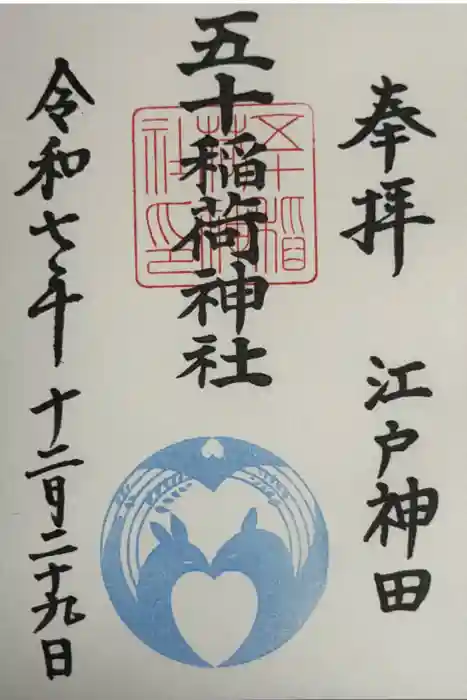 奉拝 江戸神田
五十稲荷神社
五十稲荷神社印
令和七年十二月二十九日